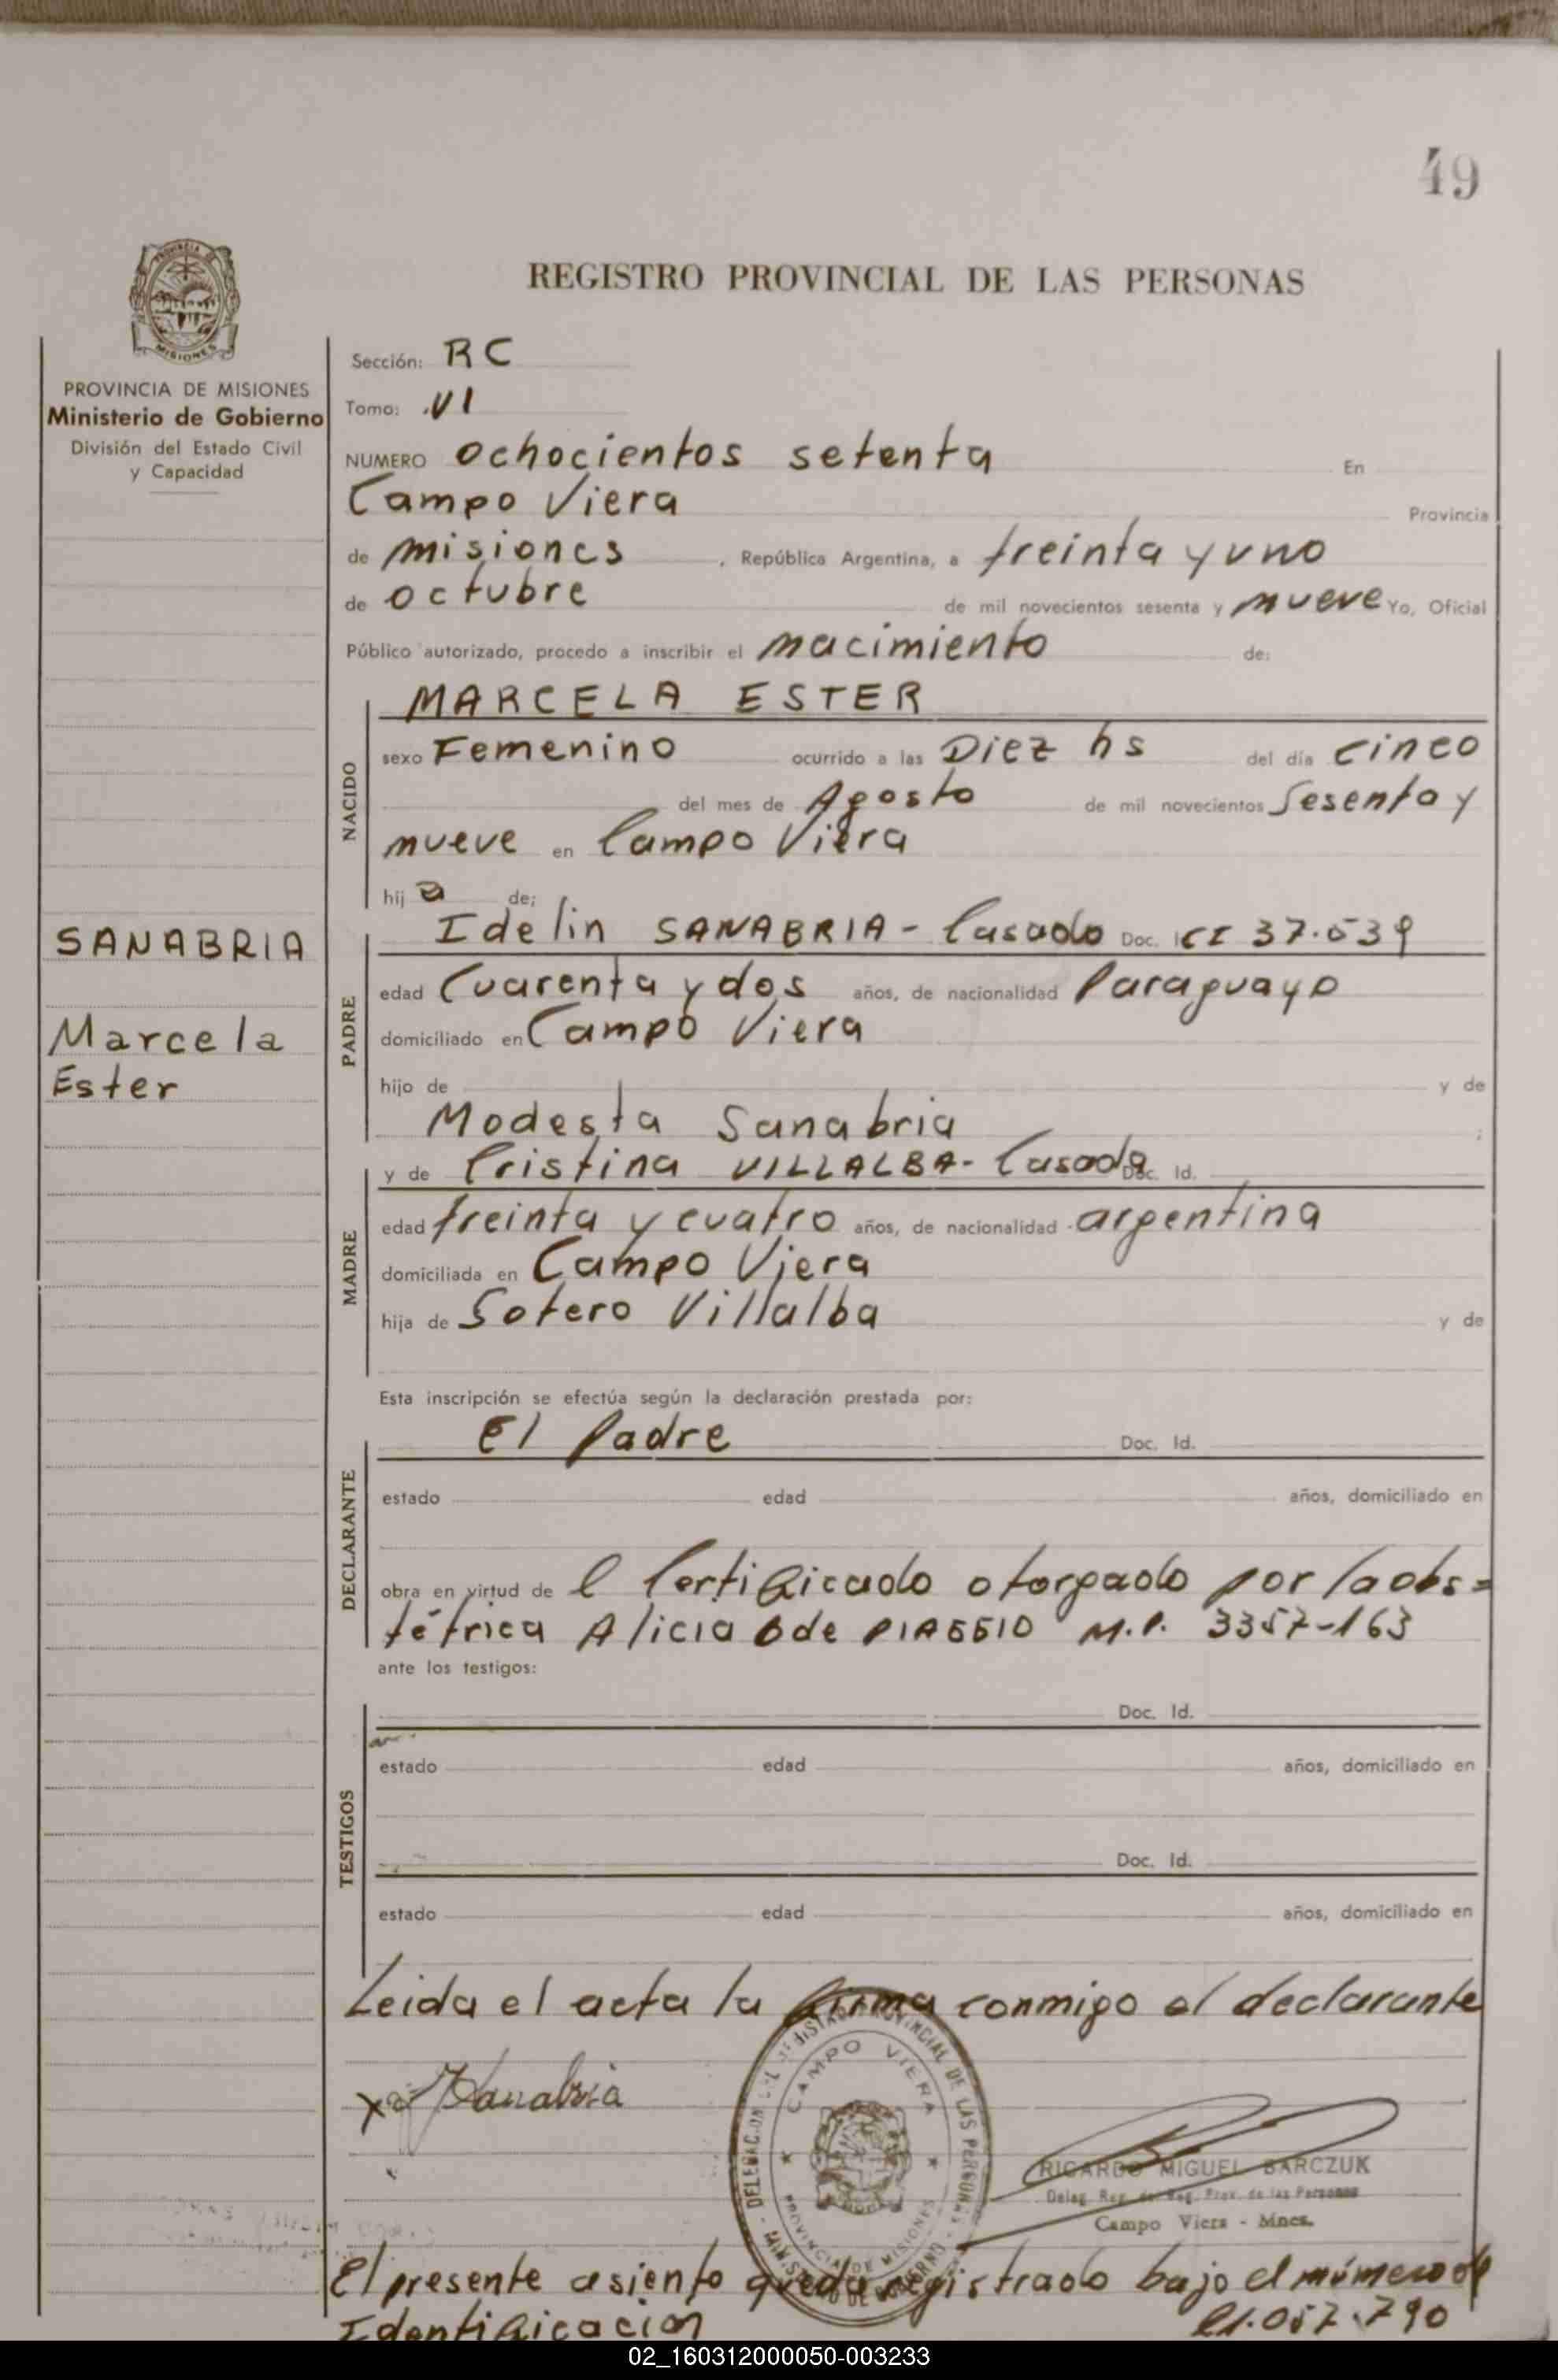 49
REGISTRO PROVINCIAL DE LAS PERSONAS
PROVINCIA DE MISIONES
Ministerio de Gobierno
División del Estado Civil
y Capacidad
SANABRIA
Marcela
Ester
Sección: RC
Tomo: VI
NUMERO ochocientos setenta En
Campo Viera Provincia
de misiones, República Argentina, a treinta y uno
de octubre de mil novecientos sesenta y nueve Yo, Oficial
Público autorizado, procedo a inscribir el nacimiento de:
NACIDO
MARCELA ESTER
sexo Femenino ocurrido a las Diez hs del día cinco
del mes de Agosto de mil novecientos Sesenta y
nueve en Campo Viera
hij a de;
PADRE
Idelin SANABRIA - Casado Doc. CI 37.539
edad Cuarenta y dos años, de nacionalidad Paraguayo
domiciliado en Campo Viera
hijo de y de
Modesta Sanabria ;
MADRE
y de Cristina VILLALBA - Casada Doc. Id.
edad treinta y cuatro años, de nacionalidad argentina
domiciliada en Campo Viera
hija de Sotero Villalba y de
Esta inscripción se efectúa según la declaración prestada por:
DECLARANTE
El Padre Doc. Id.
estado edad años, domiciliado en
obra en virtud de l Certificado otorgado por la obs=
tétrica Alicia de M.P. 3357-163
ante los testigos:
TESTIGOS
Doc. Id.
estado edad años, domiciliado en
Doc. Id.
estado edad años, domiciliado en
Leida el acta la firma conmigo el declarante
Sanabria
DELEGACION DEL REGISTRO PROVINCIAL DE LAS PERSONAS - MINISTERIO DE GOBIERNO -
CAMPO VIERA
PROVINCIA DE MISIONES
RICARDO MIGUEL BARCZUK
Deleg. Reg. del Reg. Prov. de las Personas
Campo Viera - Mnes.
El presente asiento queda registrado bajo el número de
Identificación 21.057.790
02_160312000050-003233